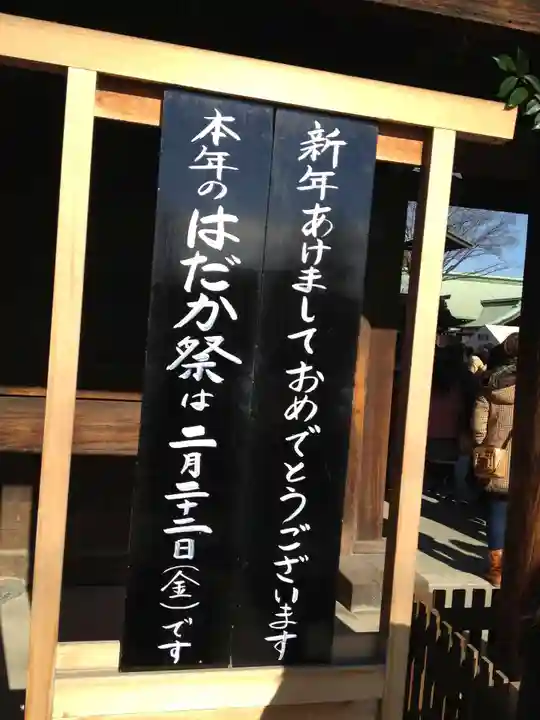 新年あけましておめでとうございます
本年のはだか祭は二月二十二日(金)です